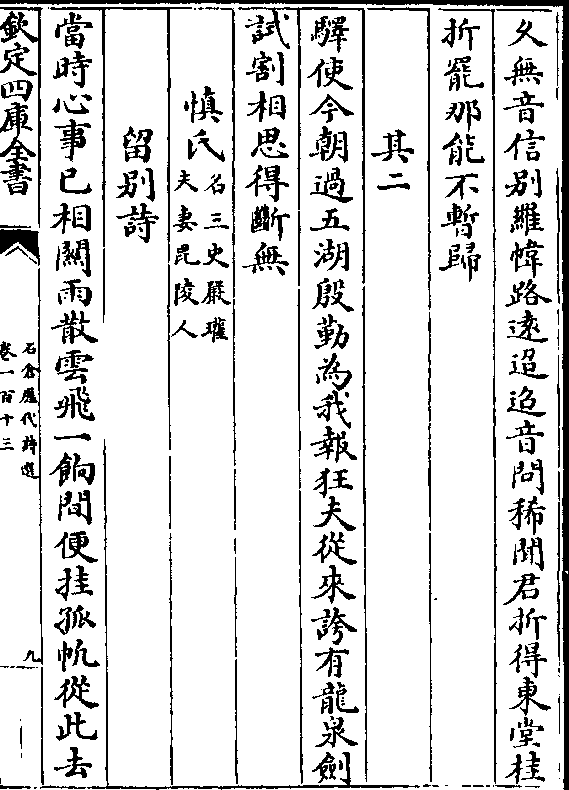 久無音信别羅幃路逺迢迢音問稀聞君折得東堂桂
折罷那能不暫歸
其二
驛使今朝過五湖殷勤為我報狂夫從來誇有龍泉劍
試割相思得斷無
慎氏名三史嚴瓘夫妻毘陵人
留别詩
當時心事已相闗雨散雲飛一餉間便挂孤帆從此去
欽定四庫全書
石倉歷代詩選
卷一百十三
九